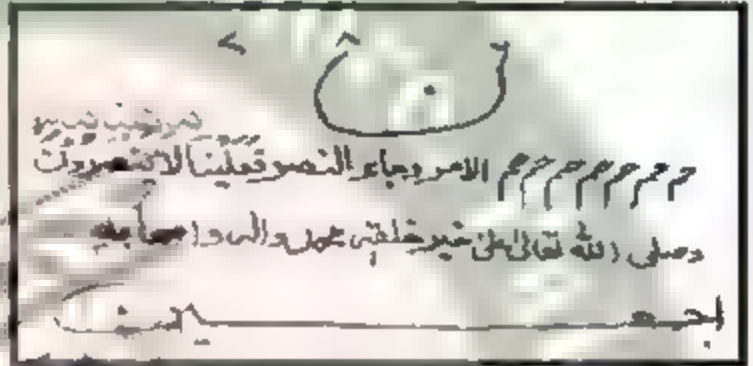 ن
حم حم حم حم حم حم حم الامر وجاء النصر فعلينا لا ينصرون
وصلى الله تعالى على خير خلقه محمد واله واصحابه
اجمعين